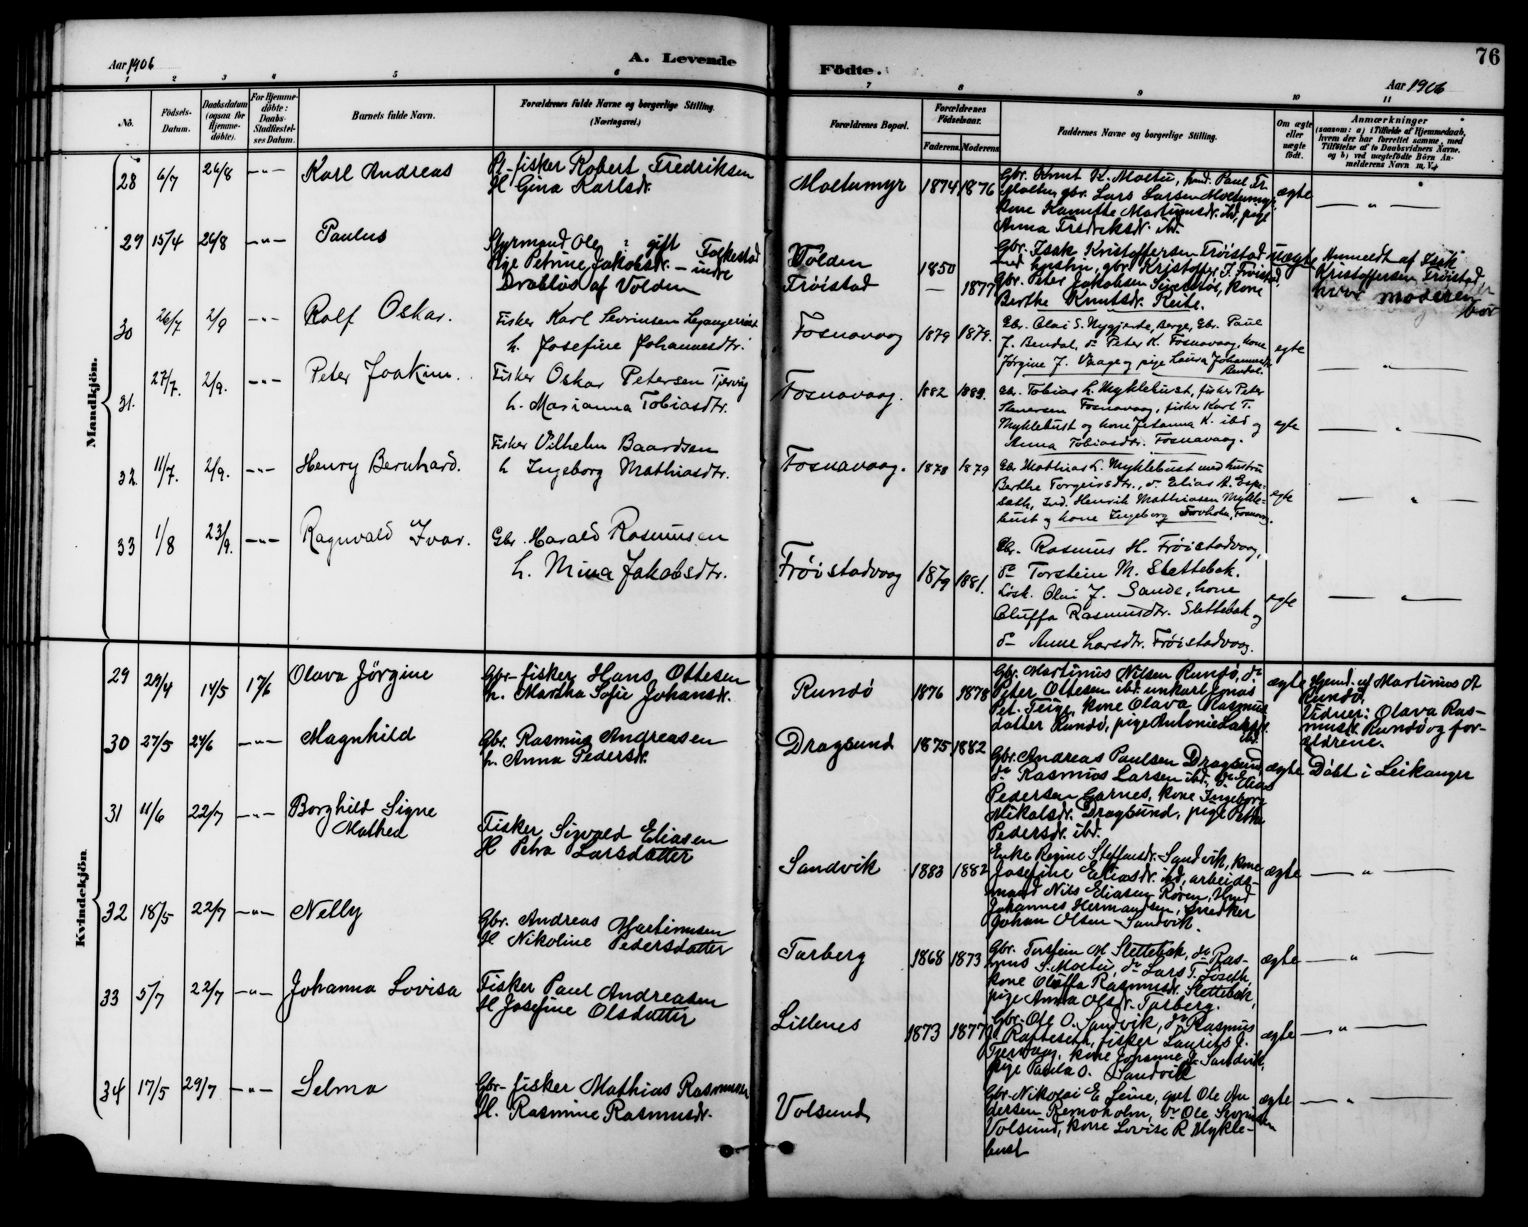 76
Aar 1906
A. Levende
Födte.
Aar 1906
1 2 3 4 5 6 7 8 9 10 11
No.
Födsels-
Datum.
Daabsdatum
(ogsaa for
Hjemme-
döbte).
For Hjemme-
döbte:
Daabs-
Stadfæstel-
ses Datum.
Barnets fulde Navn.
Forældrenes fulde Navne og borgerlige Stilling.
(Næringsvei.)
Forældrenes Bopæl.
Forældrenes
Födselsaar.
Faderens. Moderens.
Faddernes Navne og borgerlige Stilling.
Om ægte
eller
uægte
født.
Anmærkninger
(saasom: a) i Tilfælde af Hjemmedaab,
hvem der har forrettet samme, med
Tilföielse af to Daabsvidners Navne,
og b) ved uægtefödte Börn An-
melderens Navn m. V.)
Mandkjön.
28 6/7 26/8 -"- Karl Andreas
fisker Robert Fredriksen
H. Gina Karlsdr.
Moltumyr 1874 1876
Gbr. Knut K. Moltu, Paul Fr.
Moltu, gbr. Lars Larsen Moltumyr,
kone Martinusdr. ibd, pige
Anna Fredriksdr. ibd.
ægte — " —
29 15/4 26/8 -"- Paulus
Styrmand Ole ? gift Folkestad
Pige Petrine Jakobsdr. – indre
Drabløs af Volden
Volden
Frøistad
1850
— 1877
Gbr. Isak Kristoffersen Frøistad
med hustru, gbr. Kristoffer I. Frøistad,
Gbr. Peter Jakobsen kone
Berthe Knutsdr. Reite.
uægte
Anmeldt af Isak
Kristoffersen Frøistad,
hvor moderen
bor
30 26/7 2/9 -"- Rolf Oskar.
Fisker Karl Severinsen
h. Josefine Johannesdtr.
Fosnavaag 1879 1879.
Gbr. Olai S. Myrhjerte, Berge, Gbr. Paul
J. Bendal, do Peter K. Fosnavaag, kone
Jørgine J. Vaage og pige Laura Johannesdr.
Bendal.
egte — " —
31. 27/7. 2/9. -"- Peter Joakim.
Fisker Oskar Petersen Tjervåg
h. Marianna Tobiasdtr.
Fosnavaag. 1882 1883.
Gbr. Tobias L. Myklebust, fisker Peter
Fosnavaag, fisker Karl T.
Myklebust og kone K. ibd og
Anna Tobiasdtr. Fosnavaag.
egte — " —
32 11/7. 2/9. -"- Henry Bernhard.
Fisker Vilhelm Baardsen
h. Ingeborg Mathiasdtr.
Fosnavaag. 1878 1879
Gbr. Mathias L. Myklebust med hustru
Berthe Torgeirsdtr., do Elias A. Espe-
seth, Ind. Henrik Mathiasen Mykle-
bust og kone Ingeborg Fosnavaag.
egte — " —
33 1/8 23/9. -"- Ragnvald Ivar.
Gbr. Harald Rasmusen
h. Mina Jakobsdtr.
Frøistadvaag 1879 1881.
Gbr. Rasmus H. Frøistadvaag,
do Torstein M. Slettebak.
Løsk. Olai J. Sande, kone
Oluffa Rasmusdtr. Slettebak og
do Anne Larsdtr. Frøistadvaag.
egte — " —
Kvindekjön.
29 29/4 14/5 17/6 Olava Jörgine
Gbr-fisker Hans Ottesen
h. Martha Sofie Johansdr.
Rundö 1876 1878
Gbr. Martinus Nilsen Rundö, do
Peter Ottesen ibd. unkarl Jonas
Pet. Teige, kone Olava Rasmus
datter Rundö, pige Antonie Larsdr.
ibd.
ægte
Hjemd. af Martinus
Rundö.
Vidner: Olava Ras-
musdr. Rundö og for-
ældrene.
30 27/5 24/6 -"- Magnhild
Gbr. Rasmus Andreasen
h. Anna Pedersdr.
Dragsund 1875 1882
Gbr. Andreas Paulsen Dragsund
do Rasmus Larsen ibd, do Elias
Pedersen Garnes, kone Ingeborg
Nikolsdr. Dragsund, pige Petra
Pedersdr. ibd.
ægte Døbt i Leikanger
31 11/6 22/7 -"- Borghild Signe
Mathea
Fisker Sigvald Eliasen
H Petra Larsdatter
Sandvik 1883 1882
Enke Regine Steffensdr. Sandvik, kone
Josefine Eliasdr. ibd, arbeids-
mand Nils Eliasen Røren,
Johannes Hermandsen, snedker
Johan Olsen Sandvik.
ægte — " —
32 18/5 22/7 -"- Nelly
Gbr. Andreas Martinusen
H Nikoline Pedersdatter
Tarberg 1868 1873
Gbr. Torstein M Slettebak, do Ras-
mus S. Moltu, do Lars T. Loseth,
kone Oluffa Rasmusdr. Slettebak,
pige Anna Olsdr. Tarberg.
ægte — " —
33 5/7 22/7 -"- Johanna Lovisa
Fisker Paul Andreasen
H Josefine Olsdatter
Lillenes 1873 1877
Gbr. Ole O. Sandvik, do Rasmus
fisker Laurits J.
Tjervaag, kone Johanne J. Sandvik,
pige Paula O. Sandvik
ægte — " —
34 17/5 29/7 -"- Selma
Gbr-fisker Mathias Rasmusen
H. Rasmine Rasmusdr.
Volsund
Gbr. Nikolai E Leine, gut Ole An-
dersen Remøholm, do Ole
Volsund, kone Lovise R Mykle-
bust
ægte — " —